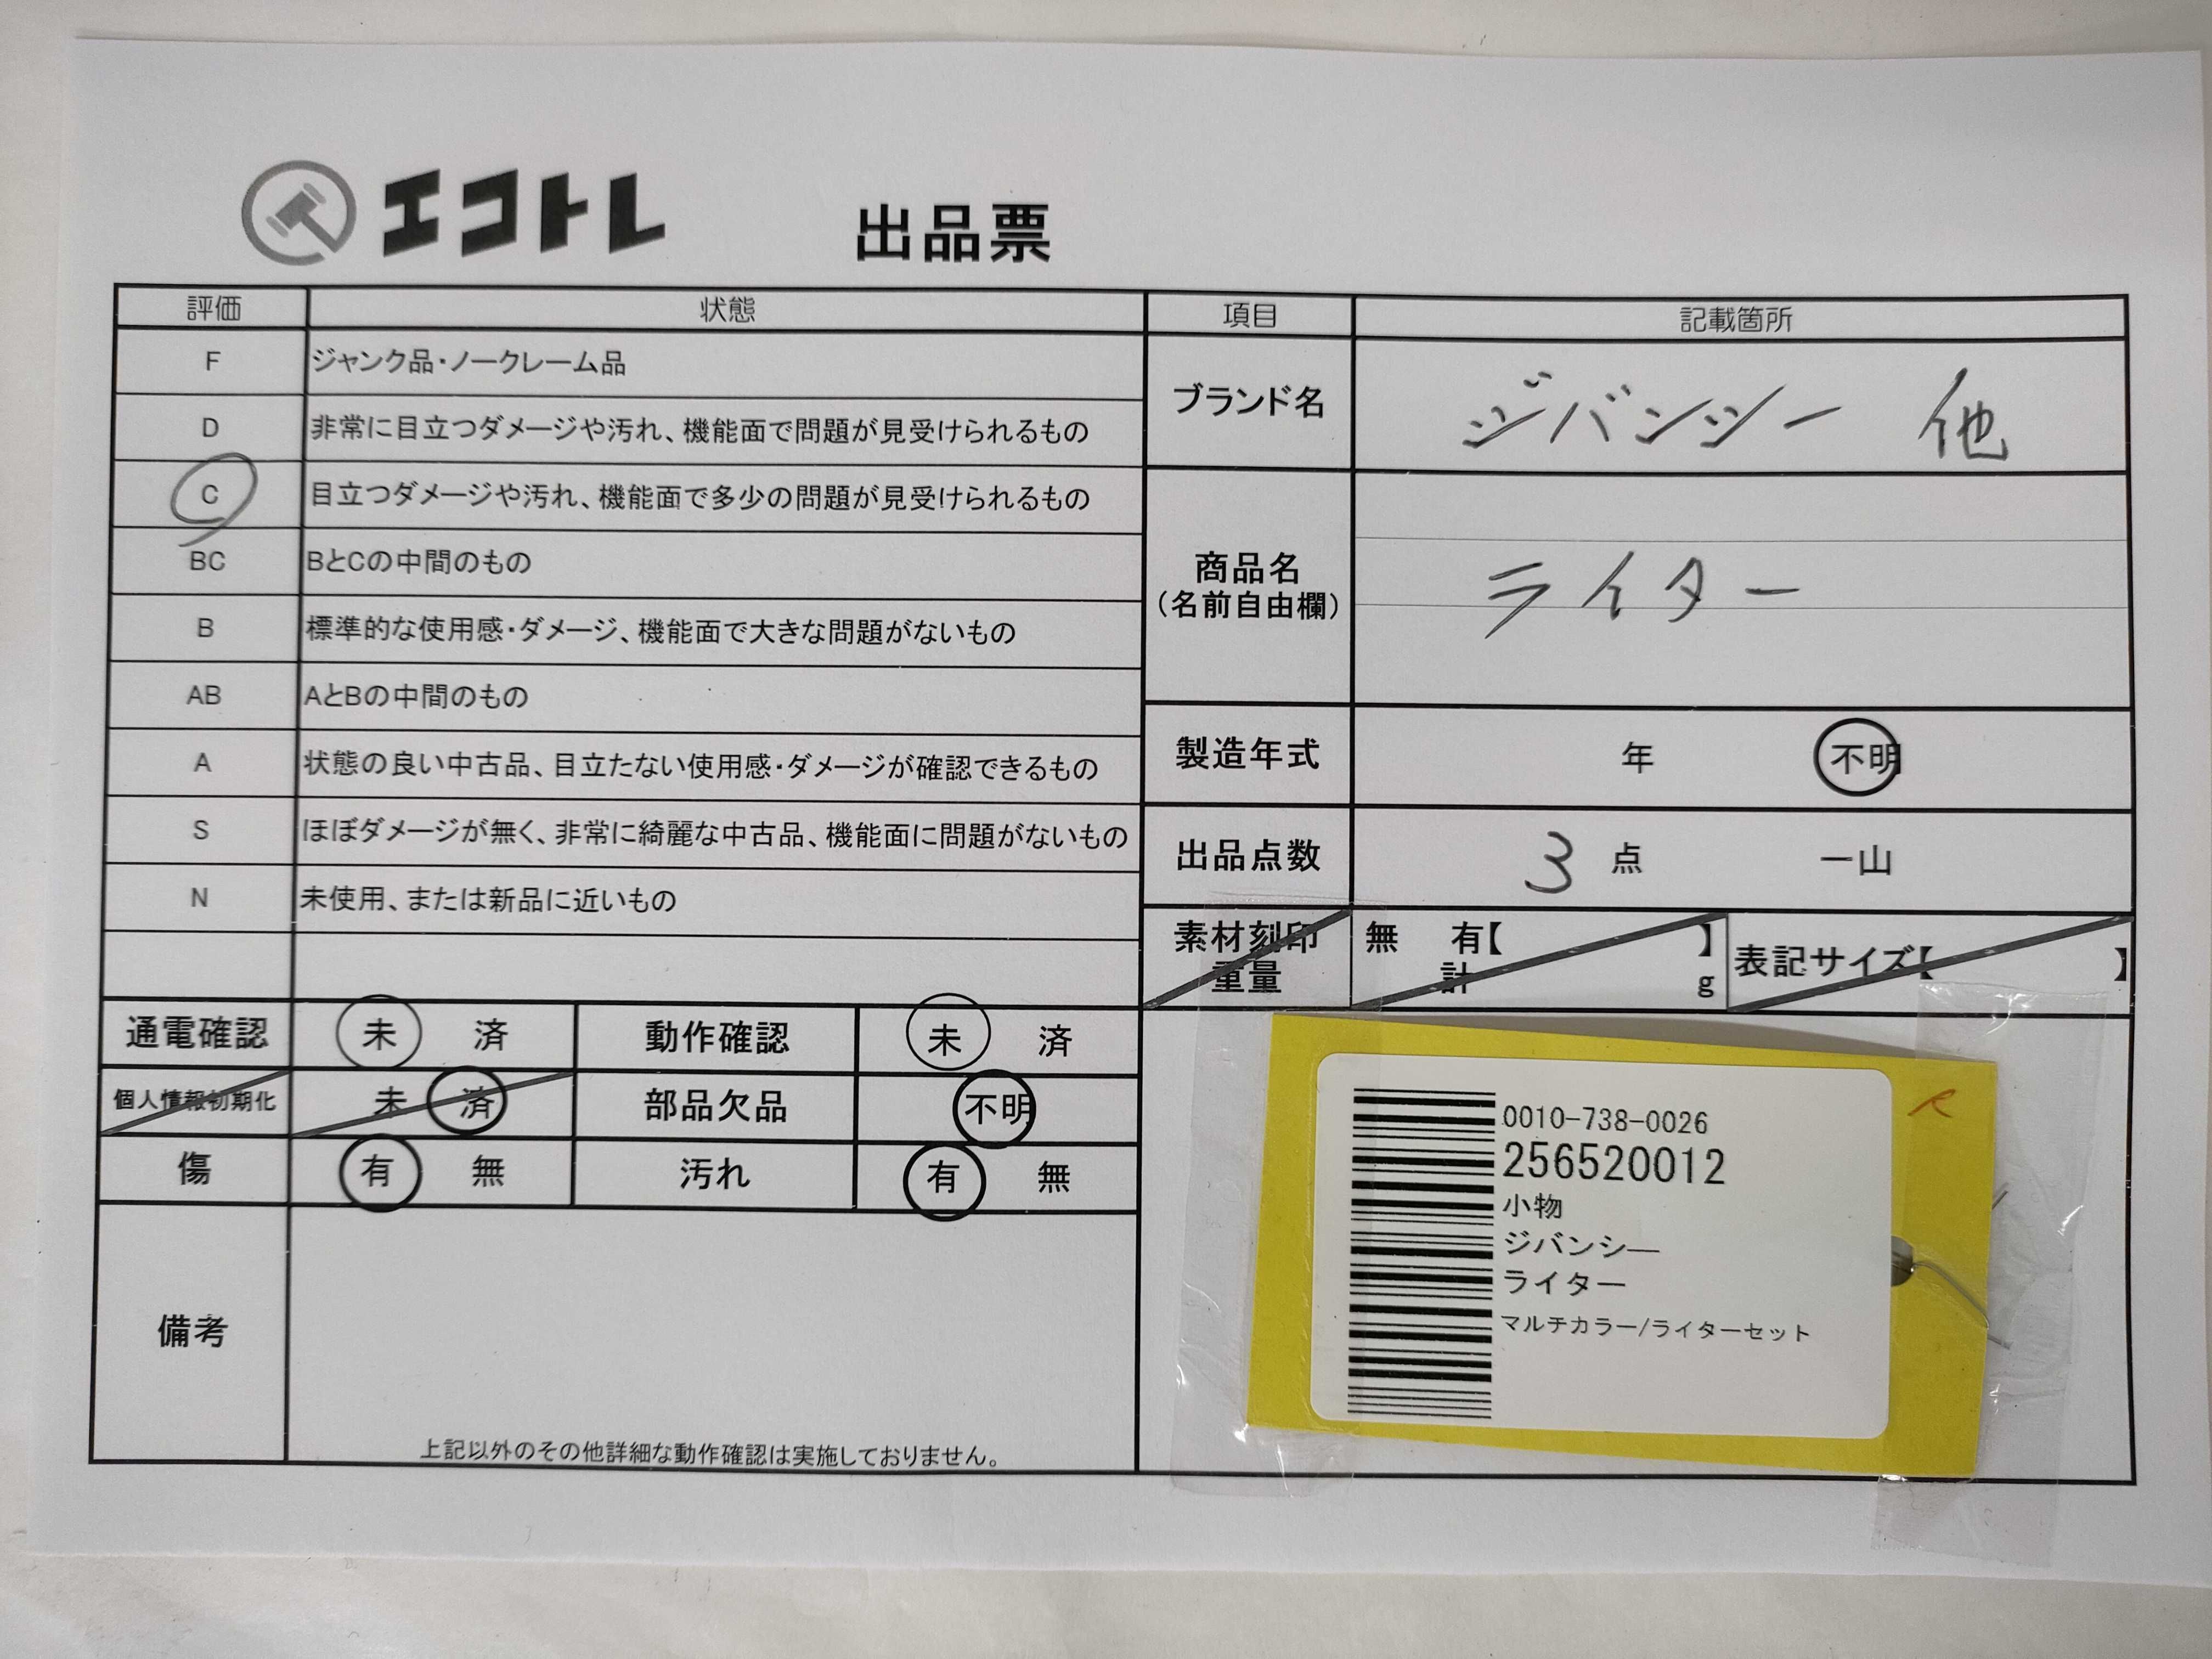 エコトレ 出品票
評価 状態
F ジャンク品・ノークレーム品
D 非常に目立つダメージや汚れ、機能面で問題が見受けられるもの
C 目立つダメージや汚れ、機能面で多少の問題が見受けられるもの
BC BとCの中間のもの
B 標準的な使用感・ダメージ、機能面で大きな問題がないもの
AB AとBの中間のもの
A 状態の良い中古品、目立たない使用感・ダメージが確認できるもの
S ほぼダメージが無く、非常に綺麗な中古品、機能面に問題がないもの
N 未使用、または新品に近いもの
通電確認 未 済 動作確認 未 済
個人情報初期化 未 済 部品欠品 不明
傷 有 無 汚れ 有 無
備考
上記以外のその他詳細な動作確認は実施しておりません。
項目 記載箇所
ブランド名 ジバンシー 他
商品名
(名前自由欄)
ライター
製造年式 年 不明
出品点数 3 点 一山
素材刻印 無 有【 】
重量 計 g
表記サイズ【 】
0010-738-0026
256520012
小物
ジバンシー
ライター
マルチカラー/ライターセット